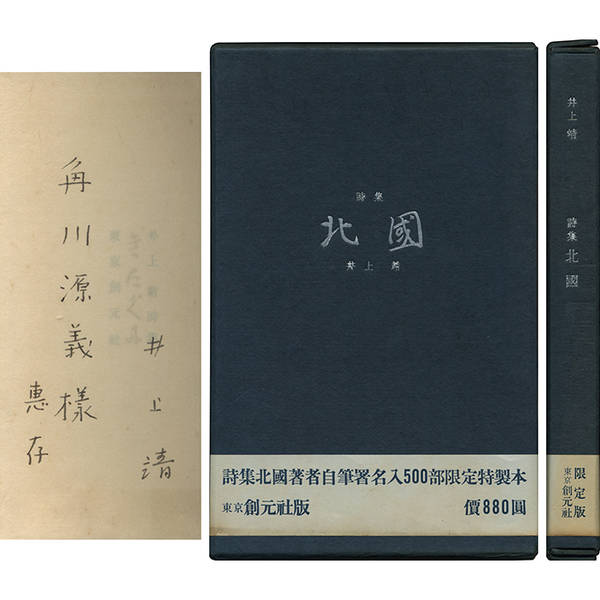 角川源義様
惠存
井上靖
井上靖詩集
きたぐに
東京創元社
詩集
北國
井上靖
詩集北國著者自筆署名入500部限定特製本
東京創元社版
價880圓
井上靖
詩集 北國
限定版
東京創元社